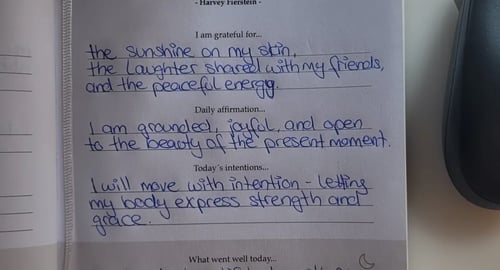 - Harvey Fierstein -
I am grateful for...
the sunshine on my skin,
the laughter shared with my friends,
and the peaceful energy.
Daily affirmation...
I am grounded, joyful, and open
to the beauty of the present moment.
Today´s intentions...
I will move with intention - letting
my body express strength and
grace.
What went well today...